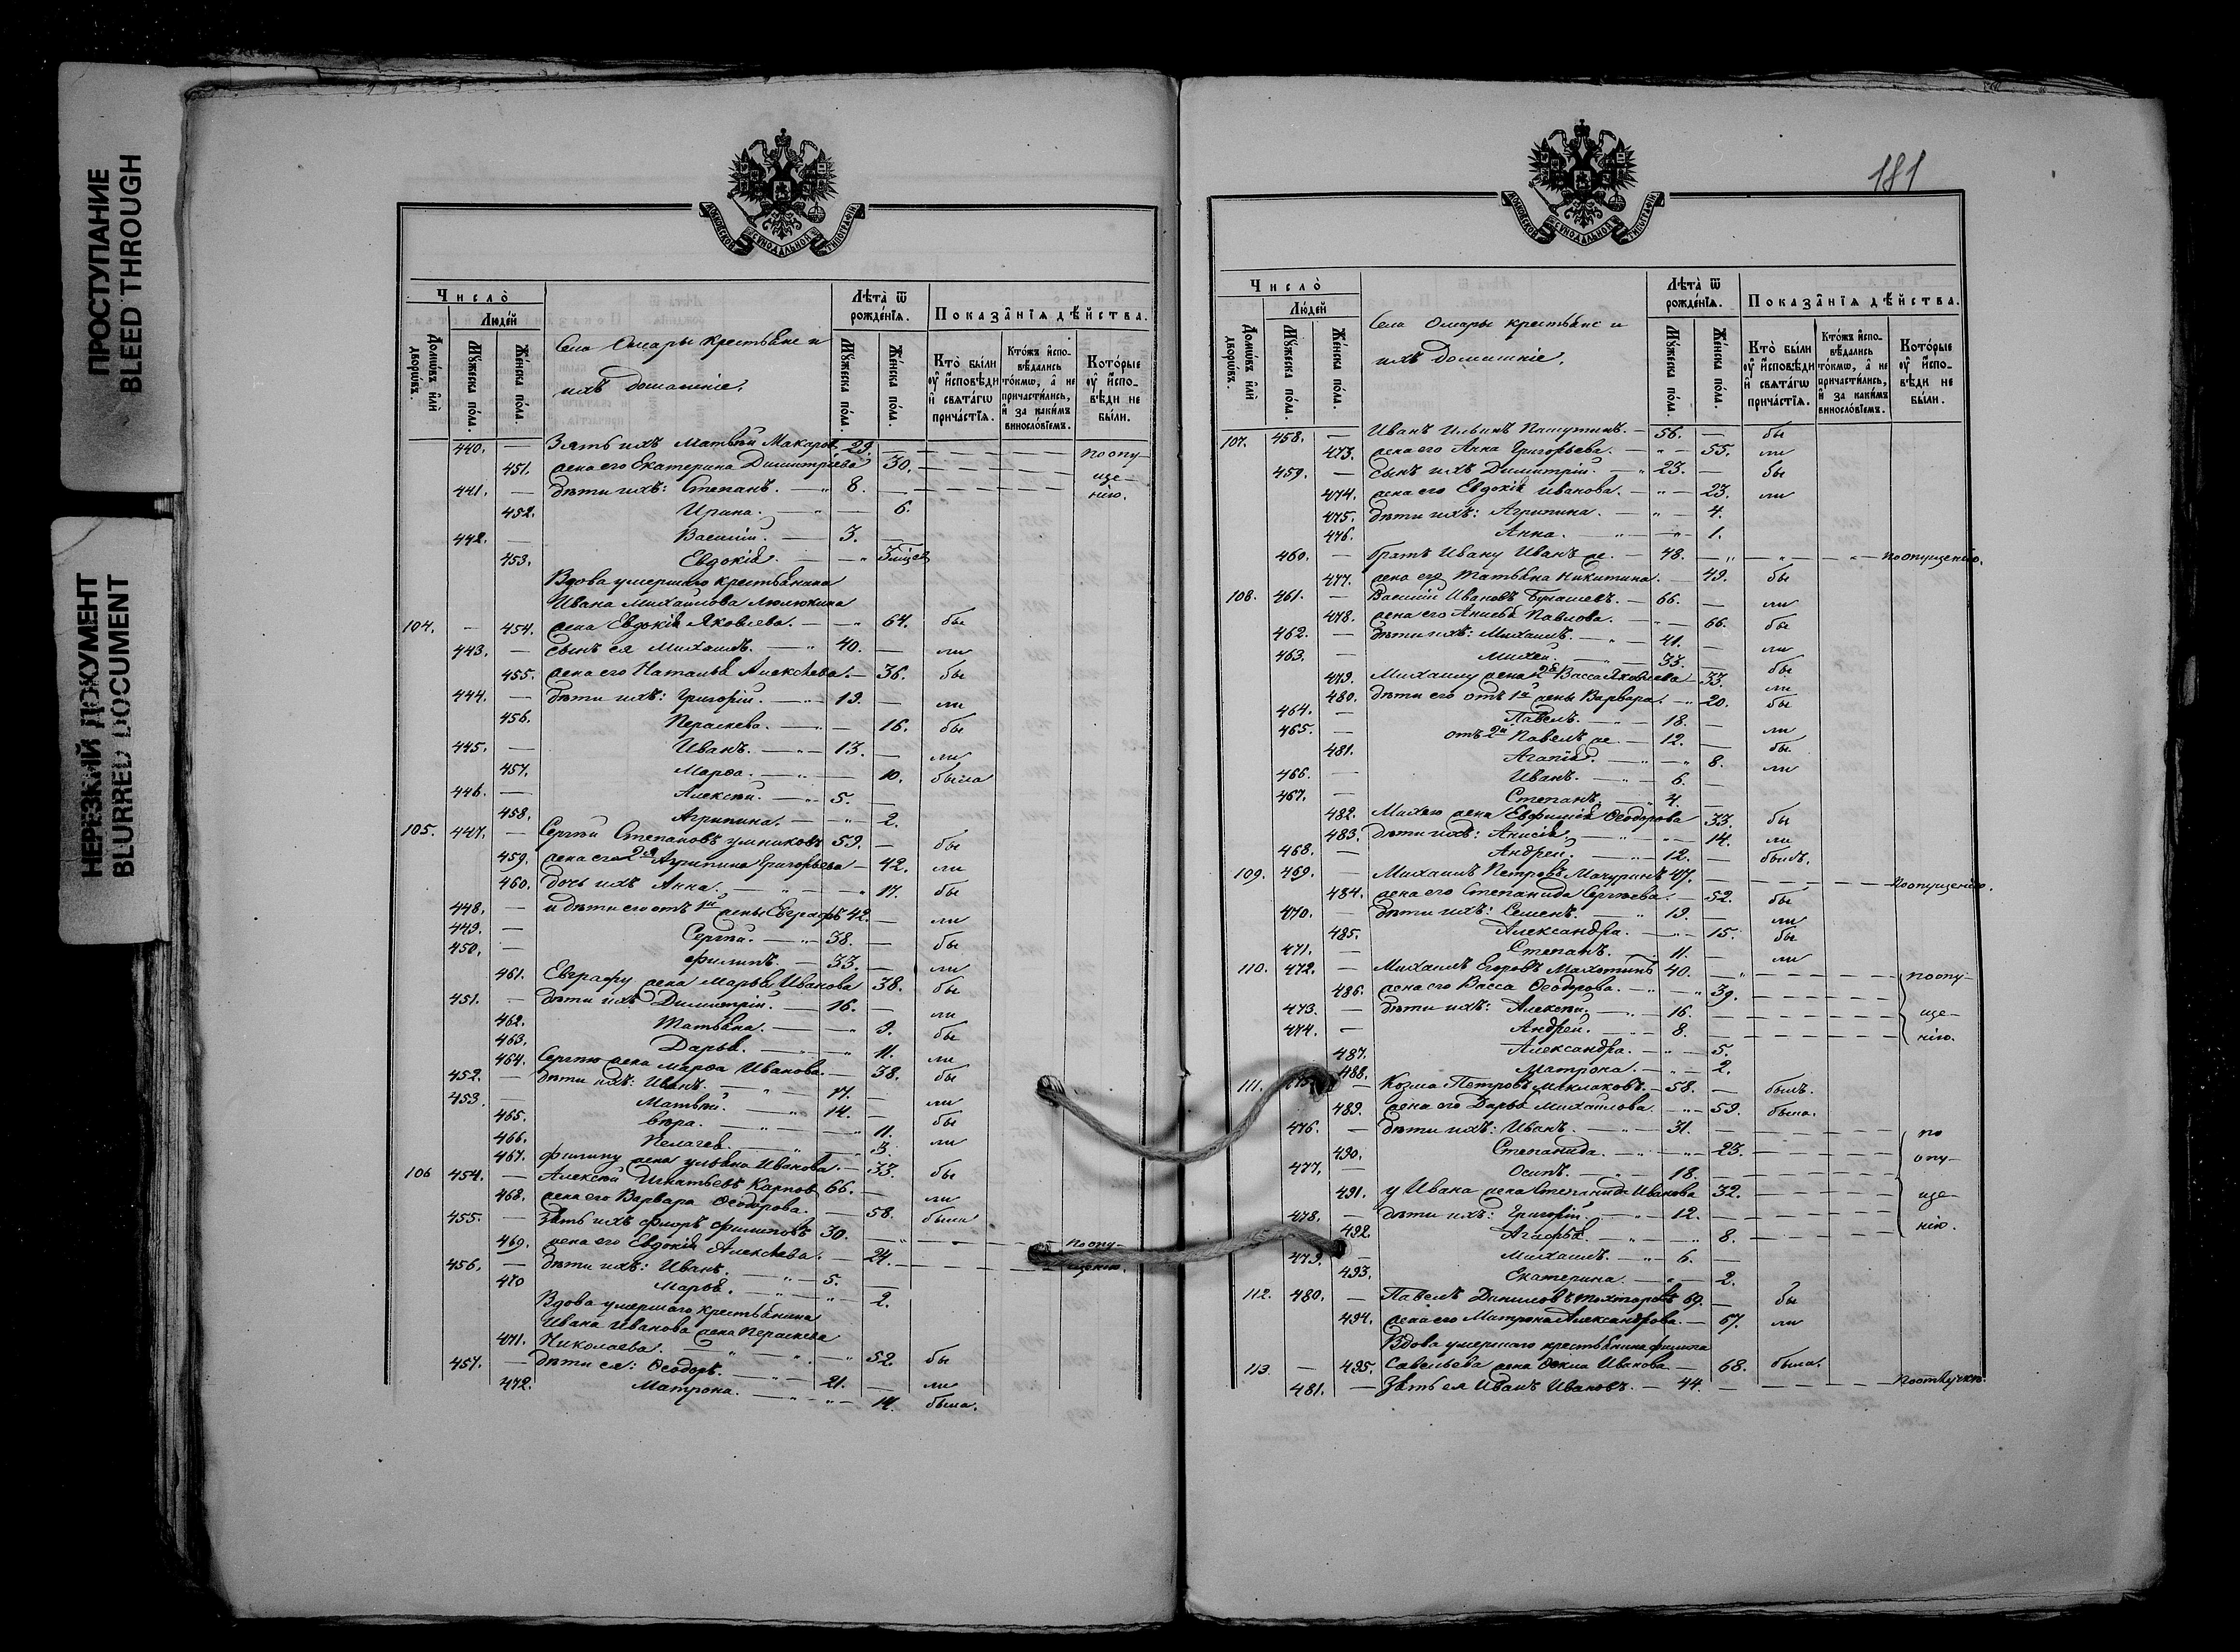 ПРОСТУПАНИЕ
BLEED THROUGH
НЕРЕЗКИЙ ДОКУМЕНТ
BLURRED DOCUMENT
МОСКОВСКОЙ СѴНОДАЛЬНОЙ ТИПОГРАФІИ
Число̀
Людей
Домѡвъ илѝ дворѡвъ.
Мꙋ́жеска по́ла.
Же́нска по́ла.
Села Омары крестьяне и
ихъ домашніе.
Лѣта̀ ѿ рожде́нїѧ.
Мꙋ́жеска по́ла.
Же́нска по́ла.
Показа̑нїѧ дѣ́йства.
Кто̀ бы́ли ᲂу҆ и҆́сповѣди и҆ свѧта́гѡ прича́стїѧ.
Кто́жъ и҆сповѣ́дались то́кмѡ, а҆ не причасти́лись, и҆ за каки́мъ виносло́вїемъ.
Кото́рые ᲂу҆ и҆́сповѣди не бы́ли.
440. — Зять ихъ Матвѣй Макаров. 29. — по опу-
451. жена его Екатерина Димитріева 30. — ще-
441. — дѣти ихъ: Степанъ. — 8. — нію.
452. Ирина. — 6.
442. — Василій. — 3. —
453. Евдокія. —
Вдова умершаго крестьянина
Ивана Михайлова
104. — 454. жена Евдокія Яковлева. — 64. бы
443. — сынъ ея Михаилъ. — 40. — ли
455. жена его Наталья Алексѣева. — 36. бы
444. — дѣти ихъ: Григорій. — 19. — ли
456. Параскева. — 16. бы
445. — Иванъ. — 13. — ли
457. Марѳа. — 10. была
446. — Алексѣй. — 5. —
458. Агрипина. — 2.
105. 447. — Сергѣй Степановъ 59. — бы
459. жена его 2я Агрипина Григорьева — 42. ли
460. дочь ихъ Анна. — 17. бы
448. — и дѣти его отъ 1й жены Евграфъ 42. — ли
449. — Сергѣй. — 38. — бы
450. — Филипъ. — 33. — ли
461. Евграфу жена Марья Иванова 38. бы
451. — дѣти ихъ Димитрій. — 16. — ли
462. Татьяна. — 9. бы
463. Дарья. — 11. ли
464. Сергѣю жена Марѳа Иванова. — 38. бы
452. — дѣти ихъ: Иванъ. — 17. — ли
453. — Матвѣй. — 14. — бы
465. Вѣра. — 11. ли
466. Пелагея — 3.
467. Филипу жена Ульяна Иванова. — 33. бы
106 454. — Алексѣй Игнатьевъ Карпов. 66. — ли
468. жена его Варвара Ѳеодорова. — 58. была
455. — Зять ихъ Флоръ Филиповъ 30. — по опу-
469. жена его Евдокія Алексѣева. — 24. — щенію.
456. — дѣти ихъ: Иванъ. — 5. —
470 Марья. — 2.
Вдова умершаго крестьянина
Ивана Иванова жена Параскева
471. Николаева. — 52. бы
457. — дѣти ея: Ѳеодоръ. — 21. — ли
472. Матрона. — 14. была.
181
МОСКОВСКОЙ СѴНОДАЛЬНОЙ ТИПОГРАФІИ
Число̀
Людей
Домѡвъ илѝ дворѡвъ.
Мꙋ́жеска по́ла.
Же́нска по́ла.
Села Омары крестьяне и
ихъ домашніе.
Лѣта̀ ѿ рожде́нїѧ.
Мꙋ́жеска по́ла.
Же́нска по́ла.
Показа̑нїѧ дѣ́йства.
Кто̀ бы́ли ᲂу҆ и҆́сповѣди и҆ свѧта́гѡ прича́стїѧ.
Кто́жъ и҆сповѣ́дались то́кмѡ, а҆ не причасти́лись, и҆ за каки́мъ виносло́вїемъ.
Кото́рые ᲂу҆ и҆́сповѣди не бы́ли.
107. 458. — Иванъ Ильинъ — 56. — бы
473. жена его Анна Григорьева. — 55. ли
459. — Сынъ ихъ Димитрій. — 23. — бы
474. жена его Евдокія Иванова. — 23. ли
475. дѣти ихъ: Агрипина. — 4.
476. Анна. — 1.
460. — братъ Ивану Иванъ же. — 48. — по опущенію.
477. жена его Татьяна Никитина. — 49. бы
108. 461. — Василій Ивановъ — 66. — ли
478. жена его Анисья Павлова. — 66. бы
462. — дѣти ихъ: Михаилъ. — 41. — ли
463. — Михей. — 33. —
479. Михаилу жена 2я Васса Яковлева 33. бы
480. дѣти его отъ 1й жены Варвара. — 20. ли
464. — Павелъ. — 18. — бы
465. — отъ 2й Павелъ же. — 12. — ли
481. Агапія. — 8. бы.
466. — Иванъ. — 6. — ли
467. — Степанъ. — 4. —
482. Михею жена Евфимія Ѳеодорова 33. бы
483. дѣти ихъ: Анисія. — 14. ли
468. Андрей. — 12. — былъ.
109. 469. — Михаилъ Петровъ Мачуринъ 47. — по опущенію.
484. жена его Степанида Сергѣева. — 52. бы
470. — дѣти ихъ: Семенъ. — 19. — ли
485. Александра. — 15. бы
471. — Степанъ. — 11. — ли
110. 472. — Михаилъ Егоровъ Махотинъ 40. — по опу-
486. жена его Васса Ѳеодорова. — 39. —
473. — дѣти ихъ: Алексѣй. — 16. — ще-
474. — Андрей. — 8. — нію.
487. Александра. — 5.
488. Матрона. — 2.
111. 475. — Козма Петровъ Маклаковъ. — 58. — былъ.
489. жена его Дарья Михайлова. — 59. была.
476. — дѣти ихъ: Иванъ. — 31. — по
490. Степанида. — 23. — опу-
477. — Осипъ. — 18. —
491. у Ивана жена Степанида Иванова 32. — ще-
478. — дѣти ихъ: Григорій. — 12. — нію.
492. Агафья. — 8. —
479. — Михаилъ. — 6. —
493. Екатерина. — 2.
112. 480. — Павелъ Даниловъ 69. — бы
494. жена его Матрона Александрова. — 67. ли
Вдова умершаго крестьянина Филипа
113. — 495. Савельева жена Ѳекла Иванова — 68. была.
481. — Зять ея Иванъ Ивановъ. — 44. — по отлучкѣ.